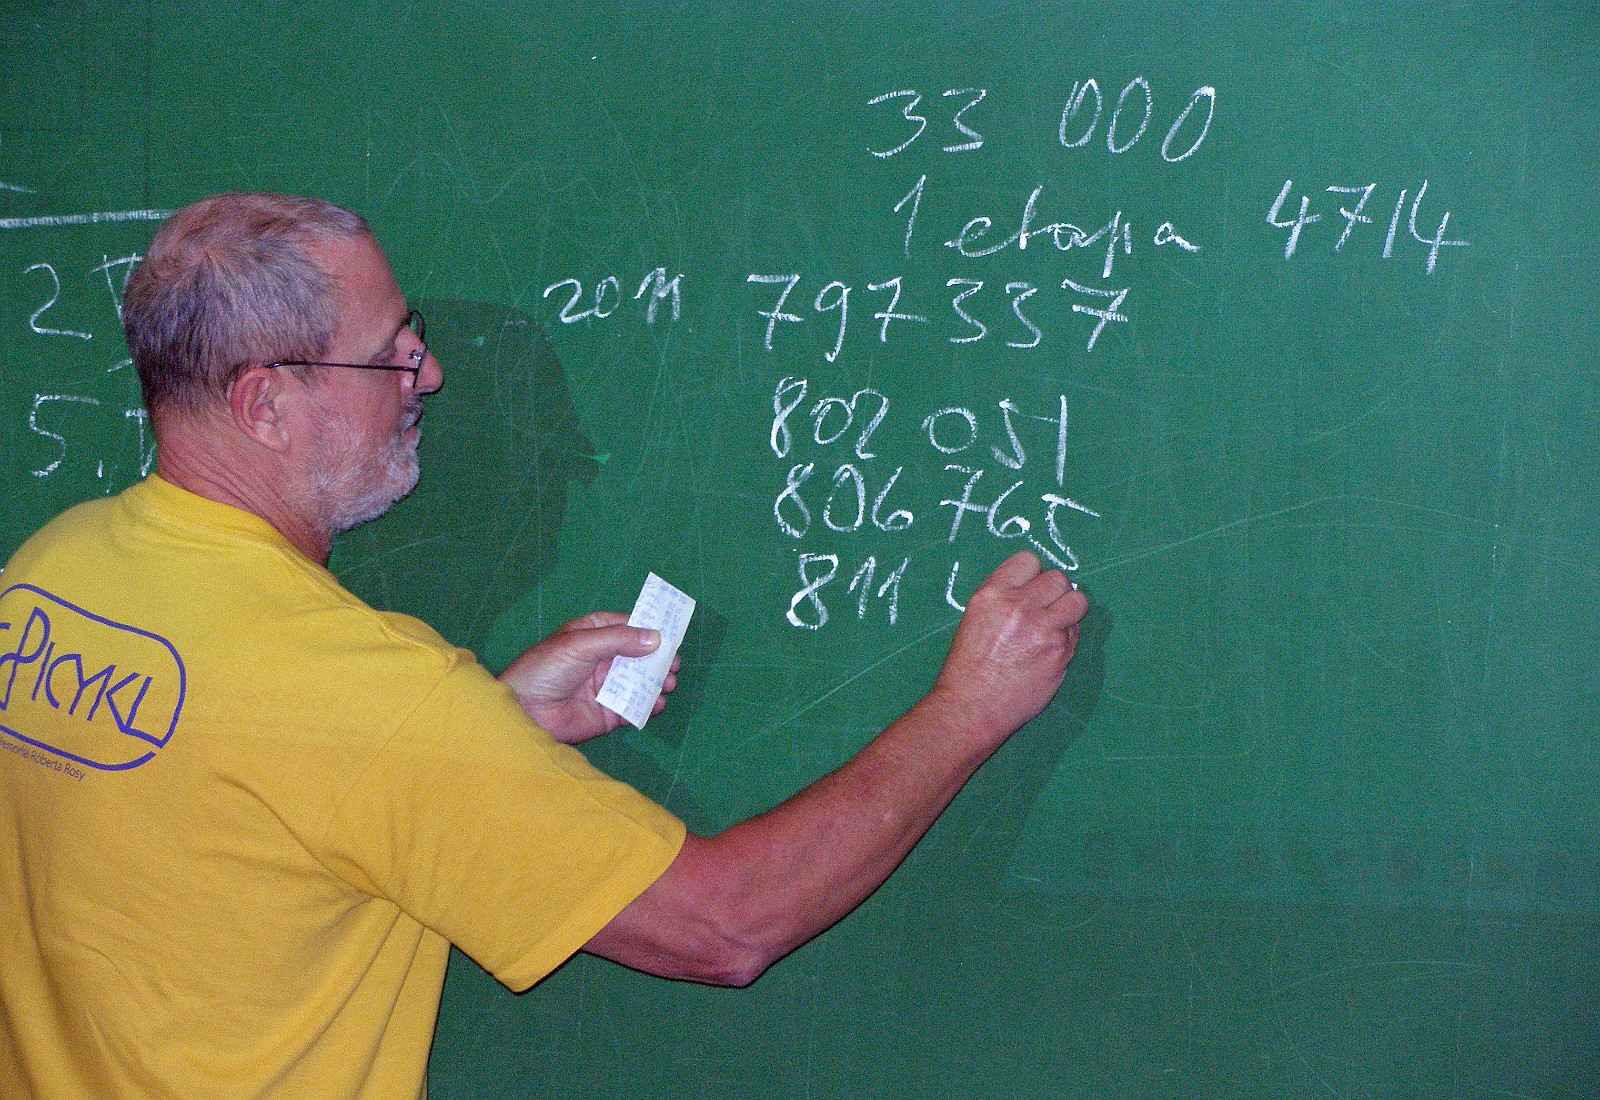 33 000
1 etapa 4714
2011 797 337
802 051
806 765
811
2
5.
EPICYKL
Memoriál Róberta Rosy